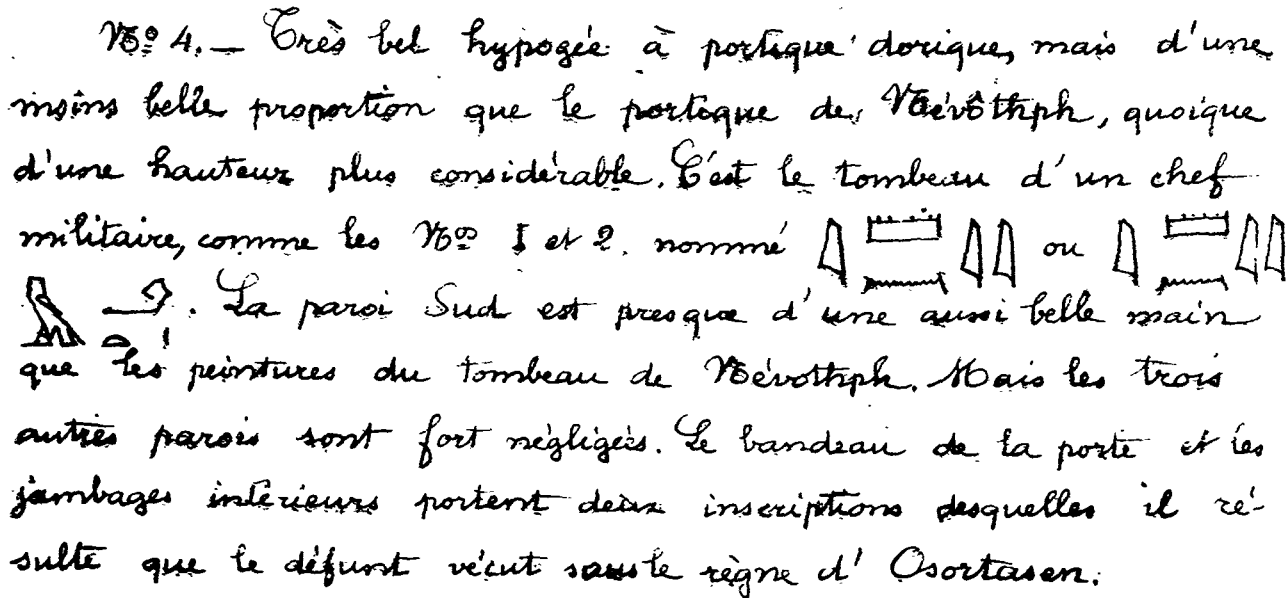 Nº 4. — Très bel hypogée à portique dorique, mais d'une
moins belle proportion que le portique de Névôthph, quoique
d'une hauteur plus considérable. C'est le tombeau d'un chef
militaire, comme les Nos 1 et 2. nommé 𓇋𓏠𓈖𓇋𓇋 ou 𓇋𓏠𓈖𓇋𓇋
. La paroi Sud est presque d'une aussi belle main
que les peintures du tombeau de Névothph. Mais les trois
autres parois sont fort négligées. Le bandeau de la porte et les
jambages intérieurs portent deux inscriptions desquelles il ré-
sulte que le défunt vécut sous le règne d'Osortasen.